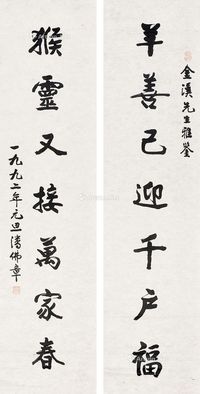 金溪先生雅鉴
羊善已迎千户福
猴靈又接萬家春
一九九二年元旦潘佛章